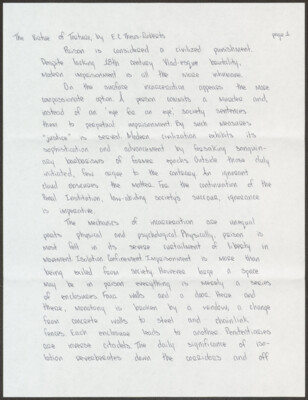 The Nature of Torture, by E.C. Theus-Roberts page 1
Prison is considered a civilized punishment.
Despite lacking 18th century Vlad-esque brutality,
Modern imprisonment is all the more inhumane.
On the surface incarceration appears the more
compassionate option. A person commits a murder and,
instead of an "eye for an eye", society sentences
them to perpetual imprisonment. By such measures
"justice" is served. Modern civilization exhibits its
sophistication and advancement by forsaking
barbarisms of former epochs. Outside those duly
initiated, few argue to the contrary. An ignorant
cloud obscures the matter. For the continuation of the
Penal Institution, law-abiding society's success, ignorance
is imperative.
The mechanics of incarceration are unequal
parts physical and psychological. Physically, prison is
most felt in its severe curtailment of liberty in
movement. Isolation. Confinement. Imprisonment is more than
being exiled from society. However large a space
may be in prison everything is merely a series
of enclosures. Four walls and a door. Here and
there, monotony is broken by a window, a change
from concrete walls to steel and chainlink
fences. Each enclosure leads to another. Penitentiaries
are inverse citadels. The daily significance of
reverberates down the corridors and off